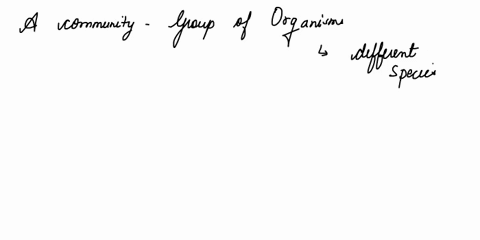 A community - Group of Organisms
↳ different
species